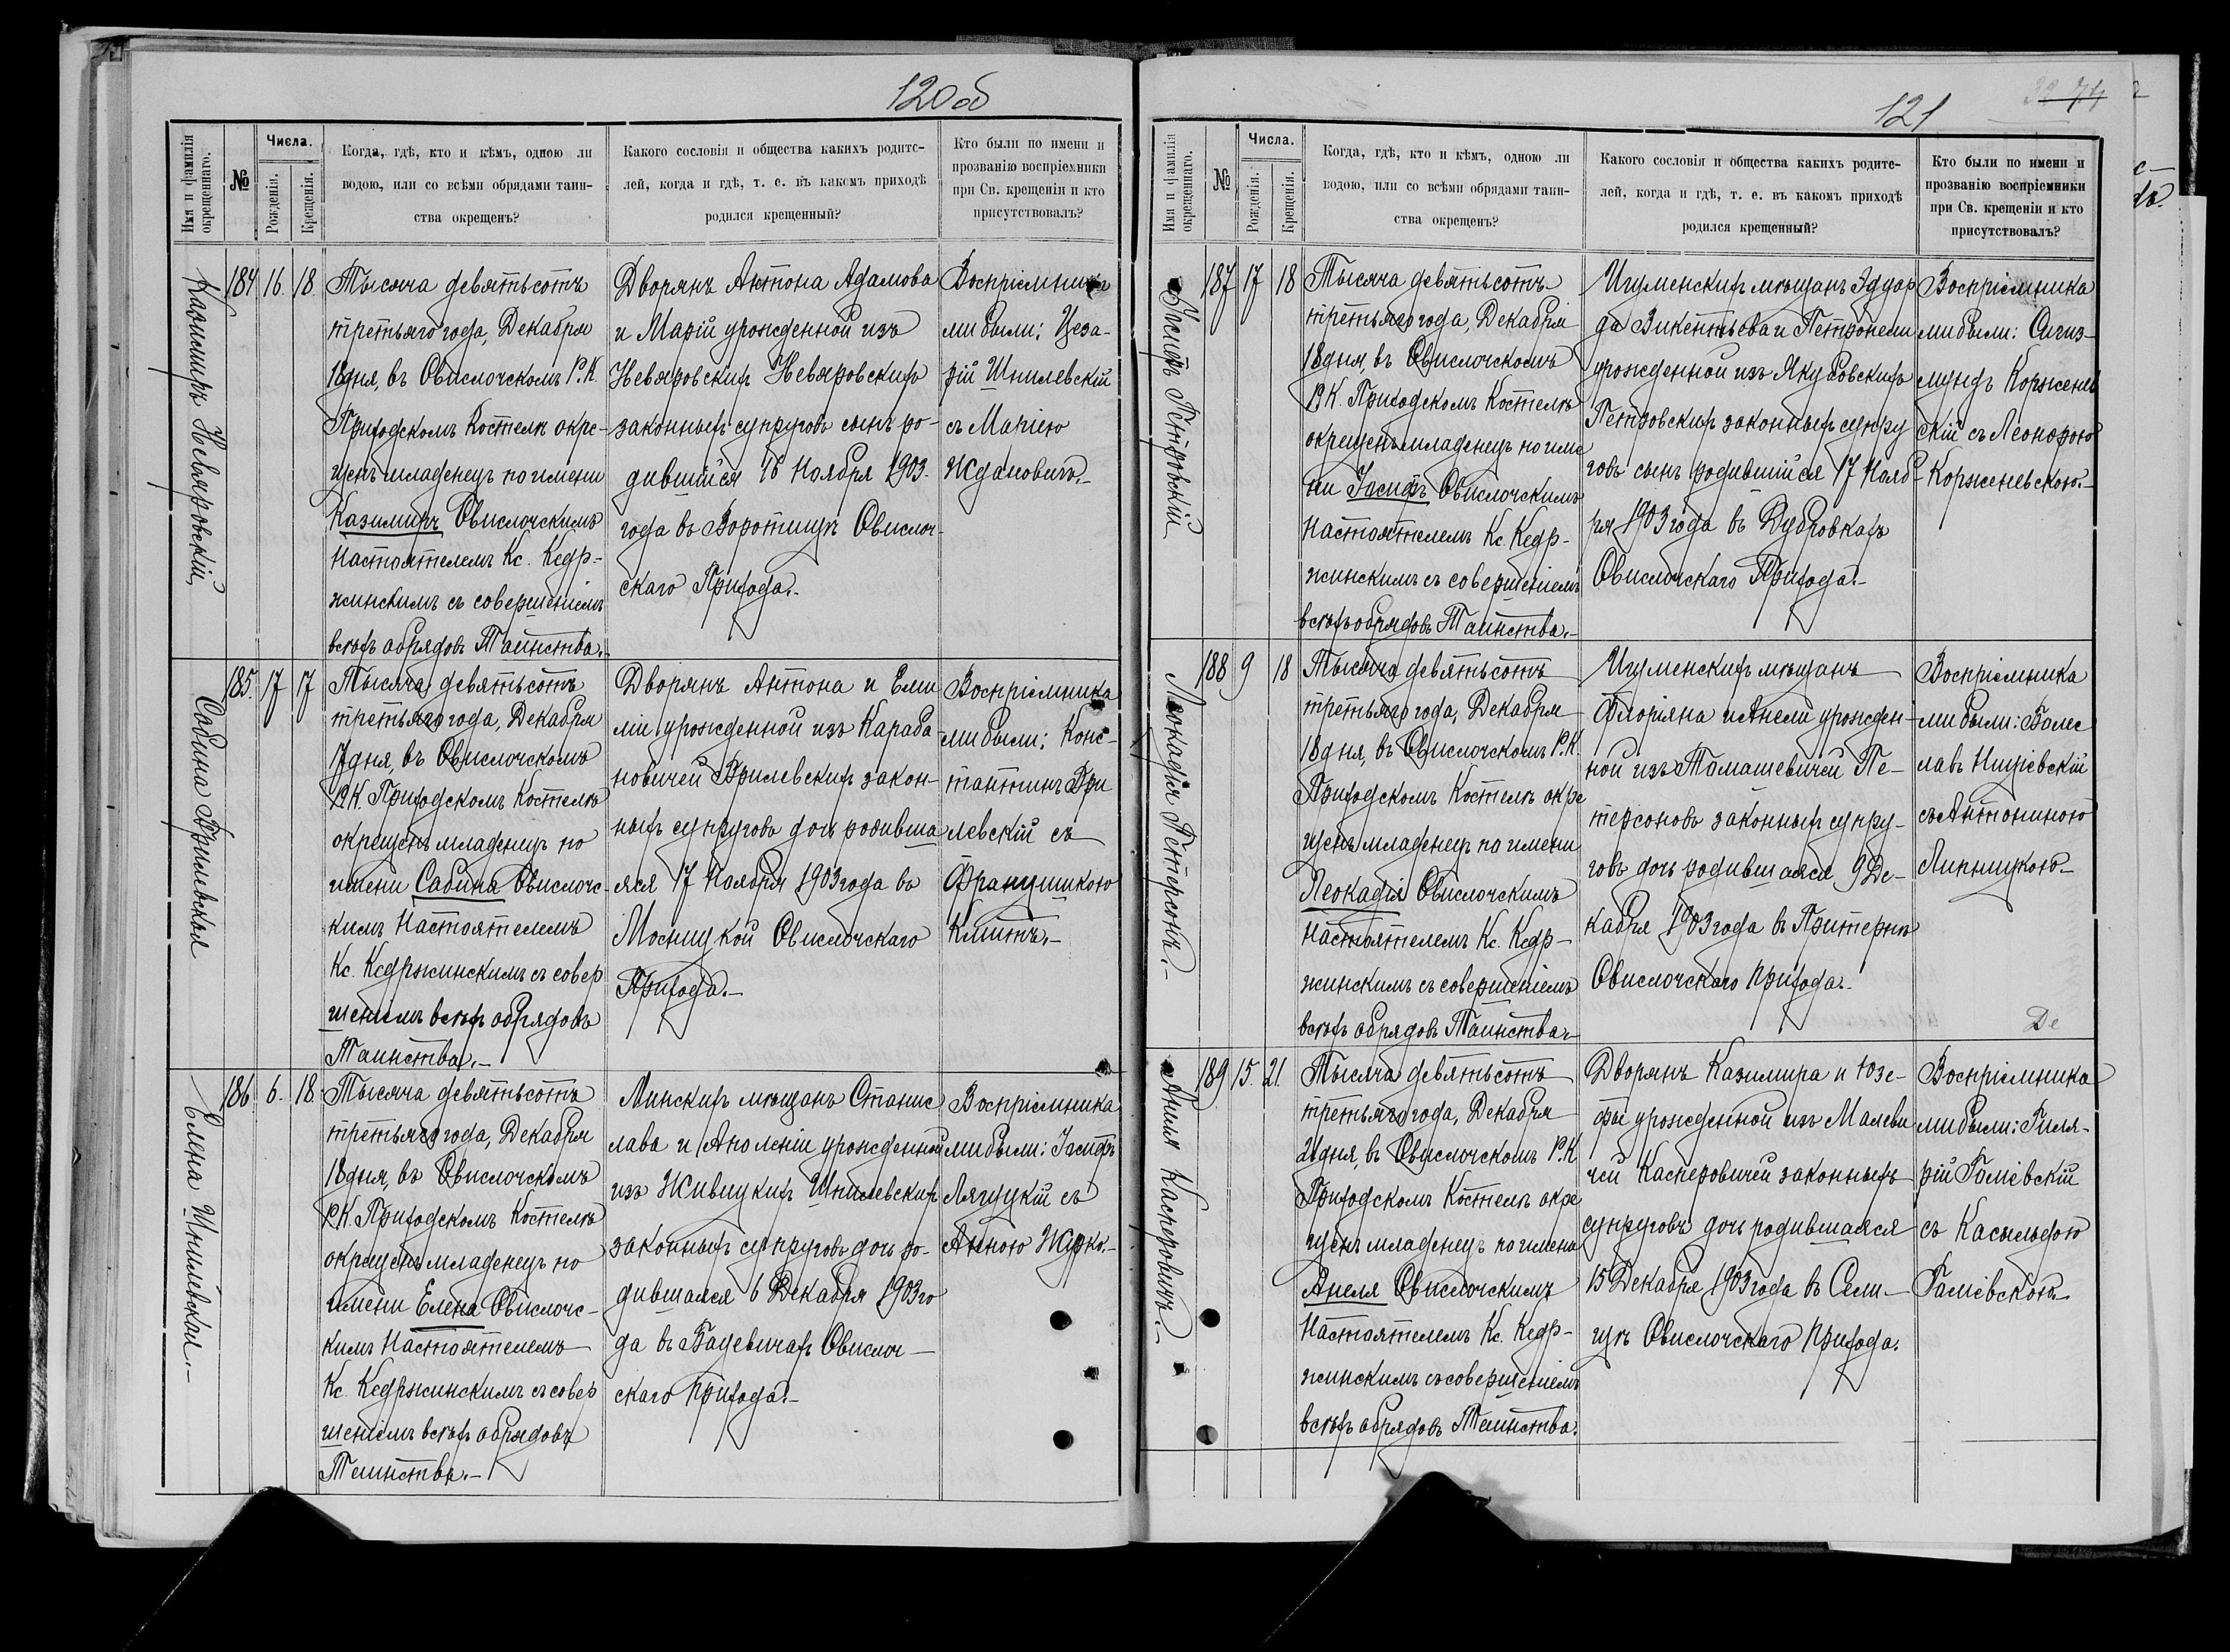 120 об
Имя и фамилія окрещеннаго.
№
Числа.
Рожденія.
Крещенія.
Когда, гдѣ, кто и кѣмъ, одною ли
водою, или со всѣми обрядами таин-
ства окрещенъ?
Какого сословія и общества какихъ родите-
лей, когда и гдѣ, т. е. въ какомъ приходѣ
родился крещенный?
Кто были по имени и
прозванію воспріемники
при Св. крещеніи и кто
присутствовалъ?
Казимиръ Невяровскій
184 16. 18.
Тысяча девятьсотъ
третьяго года, Декабря
18 дня, въ Свислочскомъ Р.К.
Приходскомъ Костелѣ окре-
щенъ младенецъ по имени
Казимиръ Свислочскимъ
Настоятелемъ Кс. Кедр-
жинскимъ съ совершеніемъ
всѣхъ обрядовъ Таинства.-
Дворянъ Антона Адамова
и Маріи урожденной изъ
Невяровскихъ Невяровскихъ
законныхъ супруговъ сынъ ро-
дившійся 16 Ноября 1903.
года въ Воротищѣ Свислоч-
скаго Прихода.-
Воспріемника
ми были: Цеза-
рій Шпилевскій
съ Маріею
Ждановичъ.-
Сабина Прилевская
185. 17 17
Тысяча девятьсотъ
третьяго года, Декабря
17 дня, въ Свислочскомъ
Р.К. Приходскомъ Костелѣ
окрещенъ младенецъ по
имени Сабина Свислочс-
кимъ Настоятелемъ
Кс. Кедржинскимъ съ совер
шеніемъ всѣхъ обрядовъ
Таинства.-
Дворянъ Антона и Еми
ліи урожденной изъ Караба
новичей Прилевскихъ закон-
ныхъ супруговъ дочь родивша
яся 17 Ноября 1903 года въ
Мосницкой Свислочскаго
Прихода.-
Воспріемника
ми были: Конс-
тантинъ При
левскій съ
Францишкою
Клитъ.-
Елена Шпилевская.-
186 6. 18.
Тысяча девятьсотъ
третьяго года, Декабря
18 дня, въ Свислочскомъ
Р.К. Приходскомъ Костелѣ
окрещенъ младенецъ по
имени Елена Свислочс-
кимъ Настоятелемъ
Кс. Кедржинскимъ съ совер
шеніемъ всѣхъ обрядовъ
Таинства.-
Минскихъ мѣщанъ Станис
лава и Аполеніи урожденной
изъ Живицкихъ Шпилевскихъ
законныхъ супруговъ дочь ро-
дившаяся 6 Декабря 1903 го
да въ Бацевичахъ Свислоч-
скаго прихода.-
Воспріемника
ми были: Іосифъ
съ
Анною
121
Имя и фамилія окрещеннаго.
№
Числа.
Рожденія.
Крещенія.
Когда, гдѣ, кто и кѣмъ, одною ли
водою, или со всѣми обрядами таин-
ства окрещенъ?
Какого сословія и общества какихъ родите-
лей, когда и гдѣ, т. е. въ какомъ приходѣ
родился крещенный?
Кто были по имени и
прозванію воспріемники
при Св. крещеніи и кто
присутствовалъ?
Іосифъ Петровскій
187 17 18
Тысяча девятьсотъ
третьяго года, Декабря
18 дня, въ Свислочскомъ
Р.К. Приходскомъ Костелѣ
окрещенъ младенецъ по име
ни Іосифъ Свислочскимъ
Настоятелемъ Кс. Кедр-
жинскимъ съ совершеніемъ
всѣхъ обрядовъ Таинства.-
Игуменскихъ мѣщанъ Эдуар
да Викентьева и Петронели
урожденной изъ Якубовскихъ
Петровскихъ законныхъ супру
говъ сынъ родившійся 17 Нояб-
ря 1903 года въ Дубровкахъ
Свислочскаго Прихода.-
Воспріемника
ми были: Сигиз-
мундъ Корженев
скій съ Леонорою
Корженевскою.-
Леокадія Петерсонъ.-
188 9 18
Тысяча девятьсотъ
третьяго года, Декабря
18 дня, въ Свислочскомъ Р.К.
Приходскомъ Костелѣ окре
щенъ младенецъ по имени
Леокадія Свислочскимъ
Настоятелемъ Кс. Кедр-
жинскимъ съ совершеніемъ
всѣхъ обрядовъ Таинства-
Игуменскихъ мѣщанъ
Флоріяна и Анели урожден-
ной изъ Томашевичей Пе-
терсоновъ законныхъ супру-
говъ дочь родившаяся 9 Де-
кабря 1903 года въ Притеркѣ
Свислочскаго прихода.-
Воспріемника
ми были: Болес
лавъ
съ Антониною
Липницкою-
Де
Анеля Касперовичъ.-
189 15. 21.
Тысяча девятьсотъ
третьяго года, Декабря
21 дня, въ Свислочскомъ Р.К.
Приходскомъ Костелѣ окре
щенъ младенецъ по имени
Анеля Свислочскимъ
Настоятелемъ Кс. Кедр-
жинскимъ съ совершеніемъ
всѣхъ обрядовъ Таинства.
Дворянъ Казимира и Юзе-
фы урожденной изъ Малеви
чей Касперовичей законныхъ
супруговъ дочь родившаяся
15 Декабря 1903 года въ Сели-
щѣ Свислочскаго прихода.
Воспріемника
ми были: Гиля-
рій Галіевскій
съ Касильдою
Галіевскою-